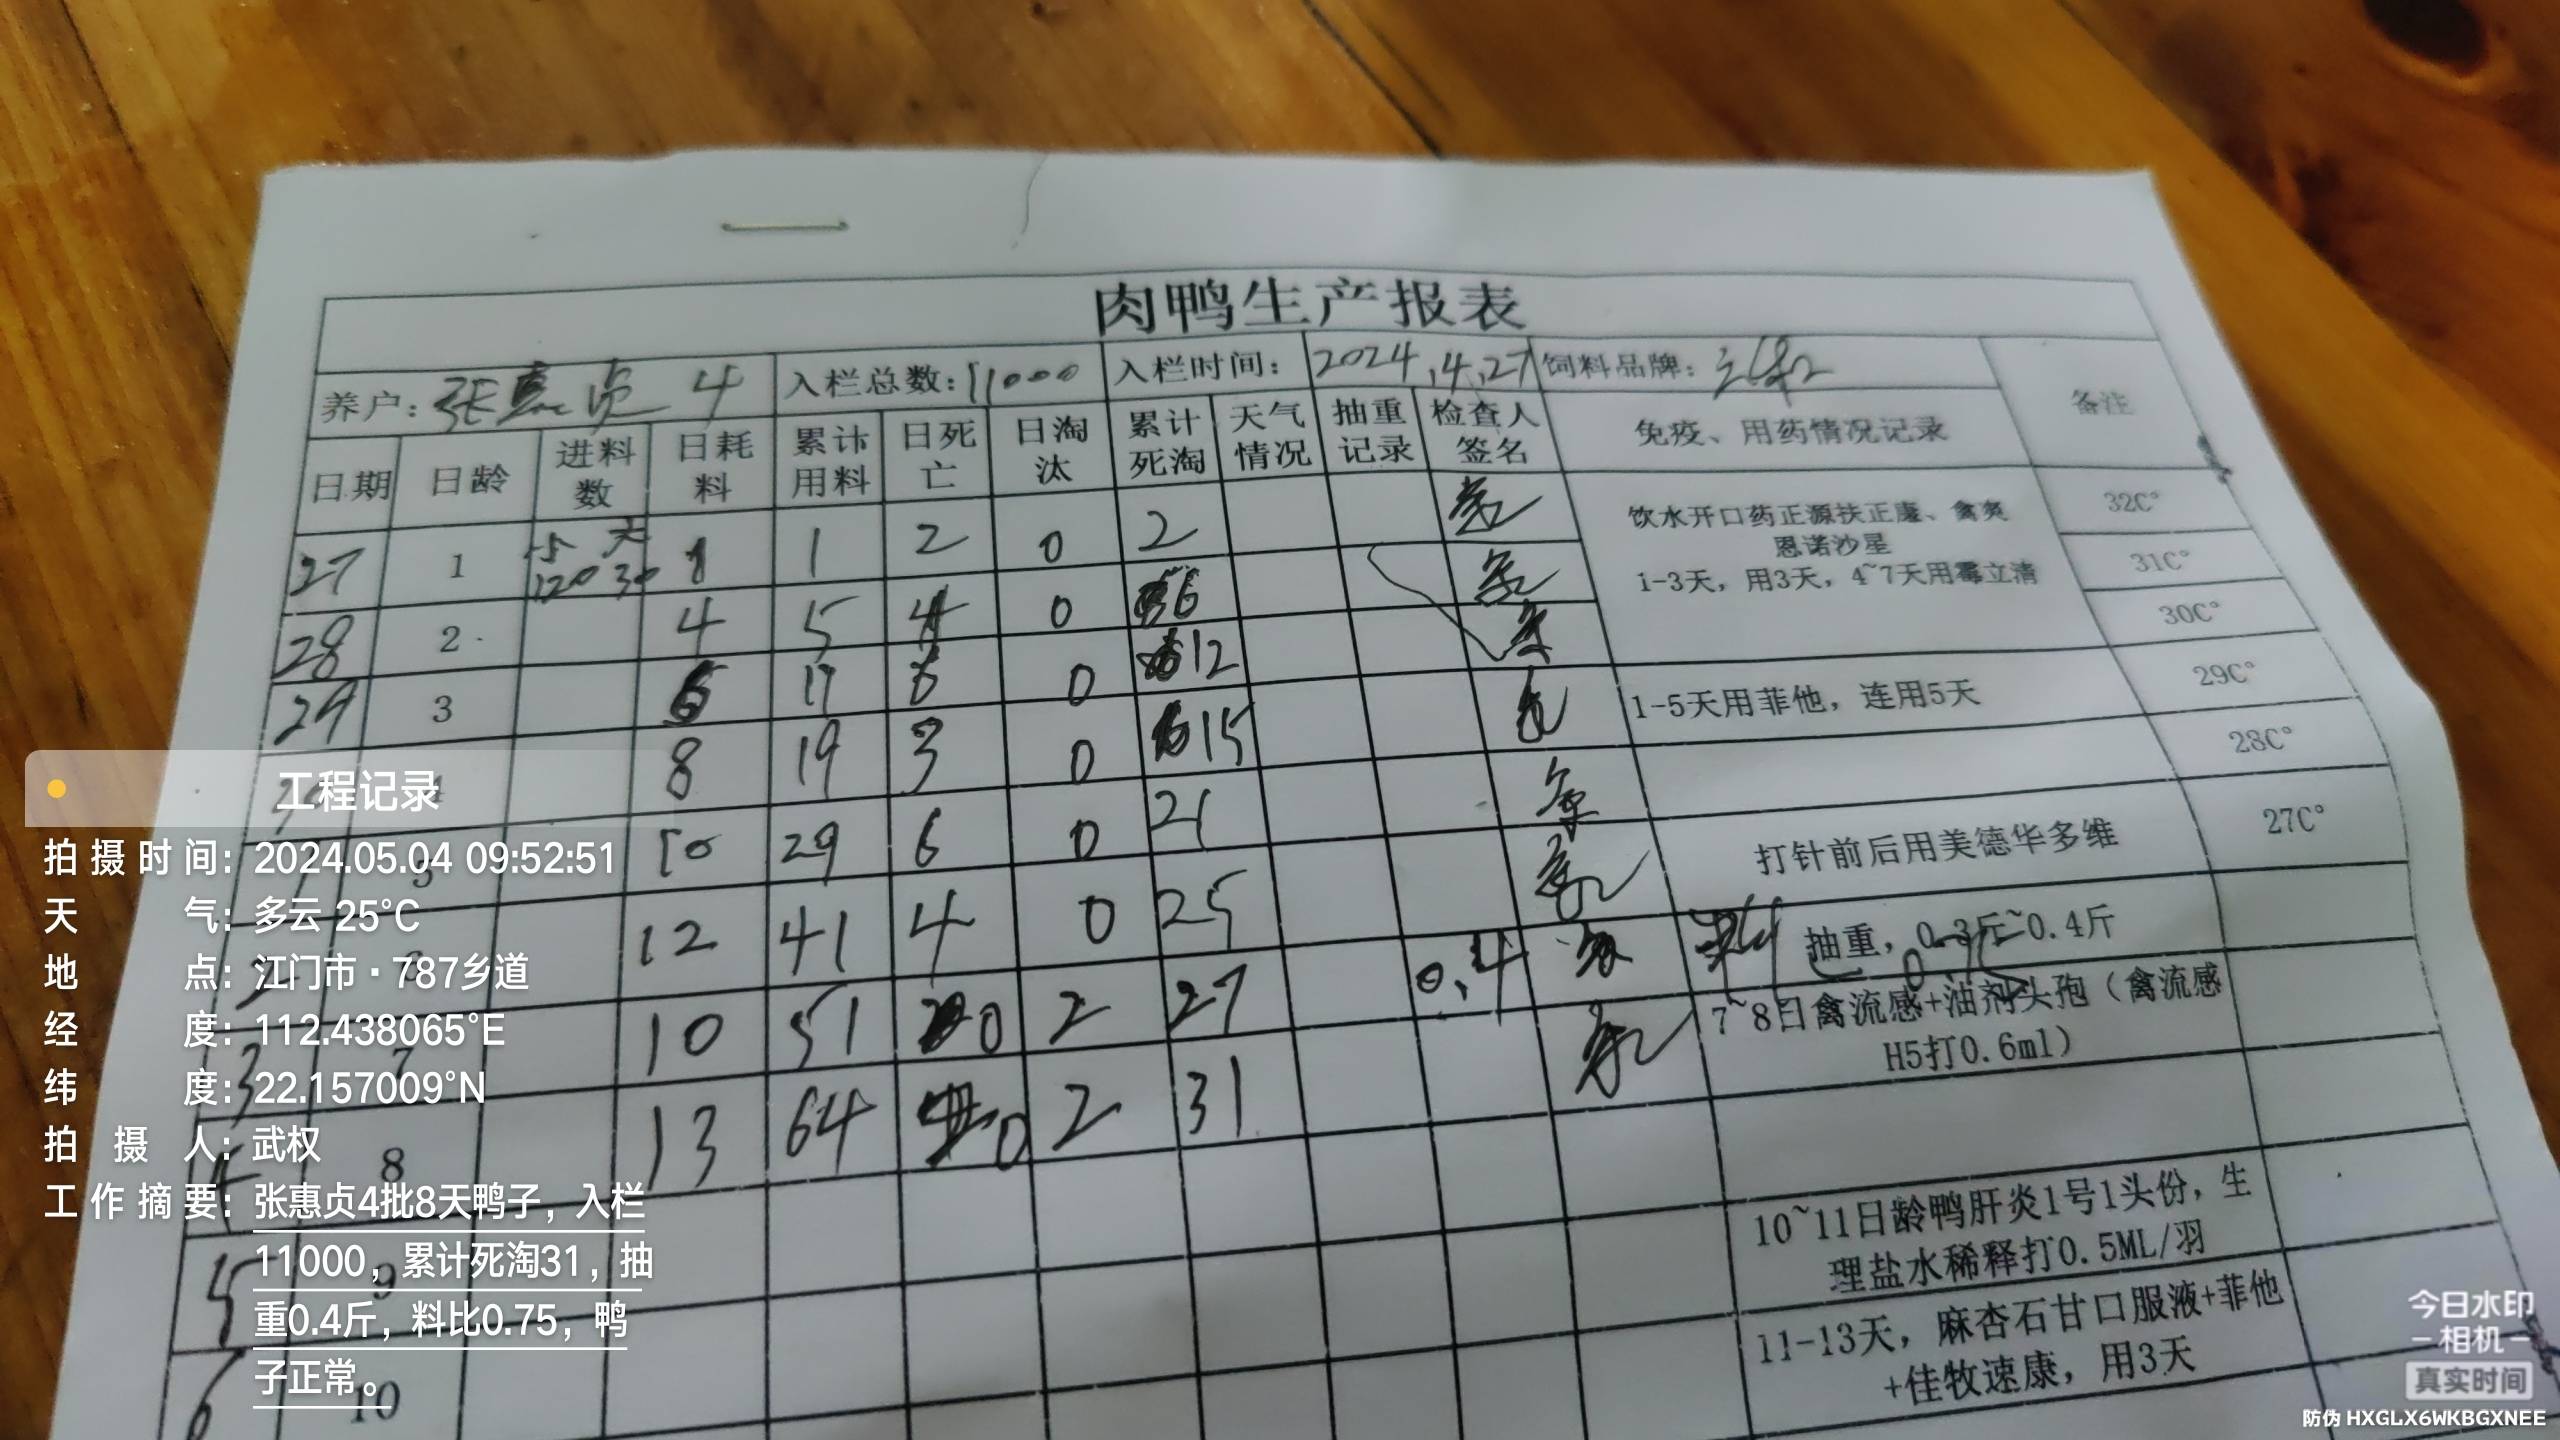 肉鸭生产报表
养户：张惠贞 4 入栏总数：11000 入栏时间：2024.4.27 饲料品牌：
日期 日龄 进料数 日耗料 累计用料 日死亡 日淘汰 累计死淘 天气情况 抽重记录 检查人签名 免疫、用药情况记录 备注
27 1 小 大 120 30 1 1 2 0 2
28 2 4 5 4 0 6
29 3 6 11 6 0 12
8 19 3 0 15
10 29 6 0 21
12 41 4 0 25
3 7 10 51 0 2 27 0.4
8 13 64 0 2 31
5 9
6 10
饮水开口药正源扶正康、禽炎
恩诺沙星
1-3天，用3天，4~7天用霉立清
1-5天用菲他，连用5天
打针前后用美德华多维
抽重，0.3斤~0.4斤
7~8日禽流感+油剂头孢（禽流感
H5打0.6ml）
10~11日龄鸭肝炎1号1头份，生
理盐水稀释打0.5ML/羽
11-13天，麻杏石甘口服液+菲他
+佳牧速康，用3天
32C°
31C°
30C°
29C°
28C°
27C°
工程记录
拍摄时间：2024.05.04 09:52:51
天气：多云 25°C
地点：江门市·787乡道
经度：112.438065°E
纬度：22.157009°N
拍摄人：武权
工作摘要：张惠贞4批8天鸭子，入栏
11000，累计死淘31，抽
重0.4斤，料比0.75，鸭
子正常。
今日水印
相机
真实时间
防伪 HXGLX6WKBGXNEE